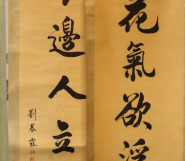 花氣欲浮
邊人立
劉春霖